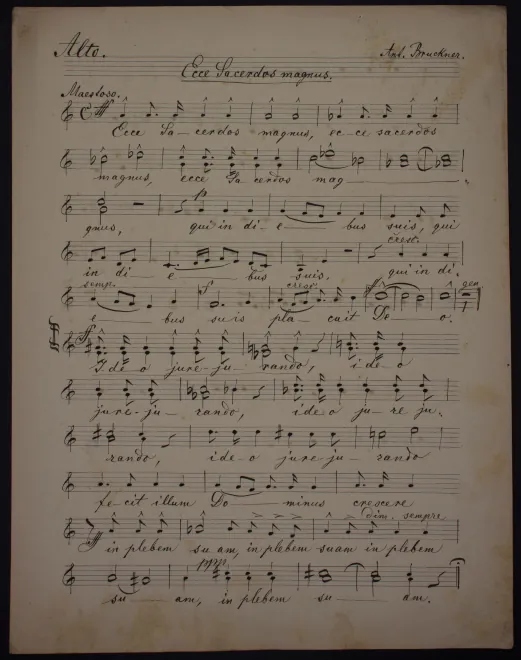 Alto.
Ant. Bruckner.
Ecce Sacerdos magnus.
Maestoso.
ff
Ecce Sa-cerdos magnus, ec-ce sacerdos
magnus, ecce Sa cerdos mag-
p
gnus, qui in di-e-bus suis, qui
cresc.
in di-e-bus suis, qui in di,
semp. f cresc. ff gen
e-bus suis pla-cuit De-o.
ff
Ide-o jure-ju-rando, ide-o
jure-ju-rando, ide-o ju-re ju,
rando, ide-o jure-ju-rando
fe-cit illum Do-minus crescere
dim. sempre
in plebem su am, in plebem suam in plebem
ppp
su-am, in plebem su-am.